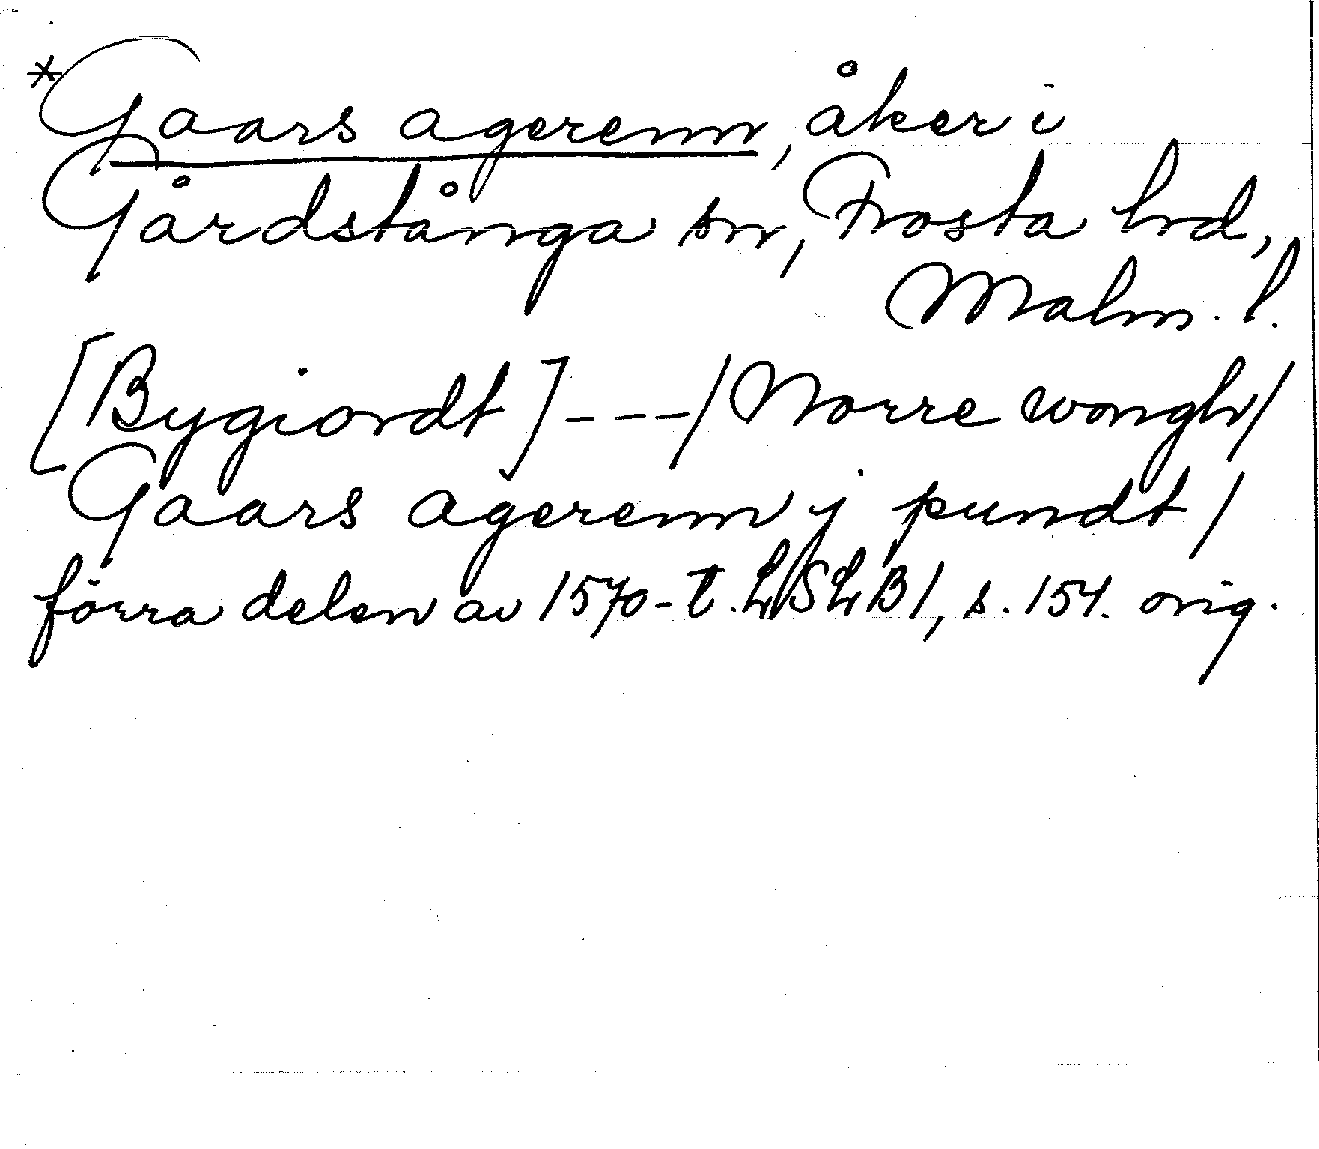 *Gaars agerenn, åker i
Gårdstånga sn, Frosta hrd,
Malm. l.
[Bygiordt] --- / Norre wongh /
Gaars agerenn j pundt /
förra delen av 1570-t. LSLB 1, s. 154. orig.